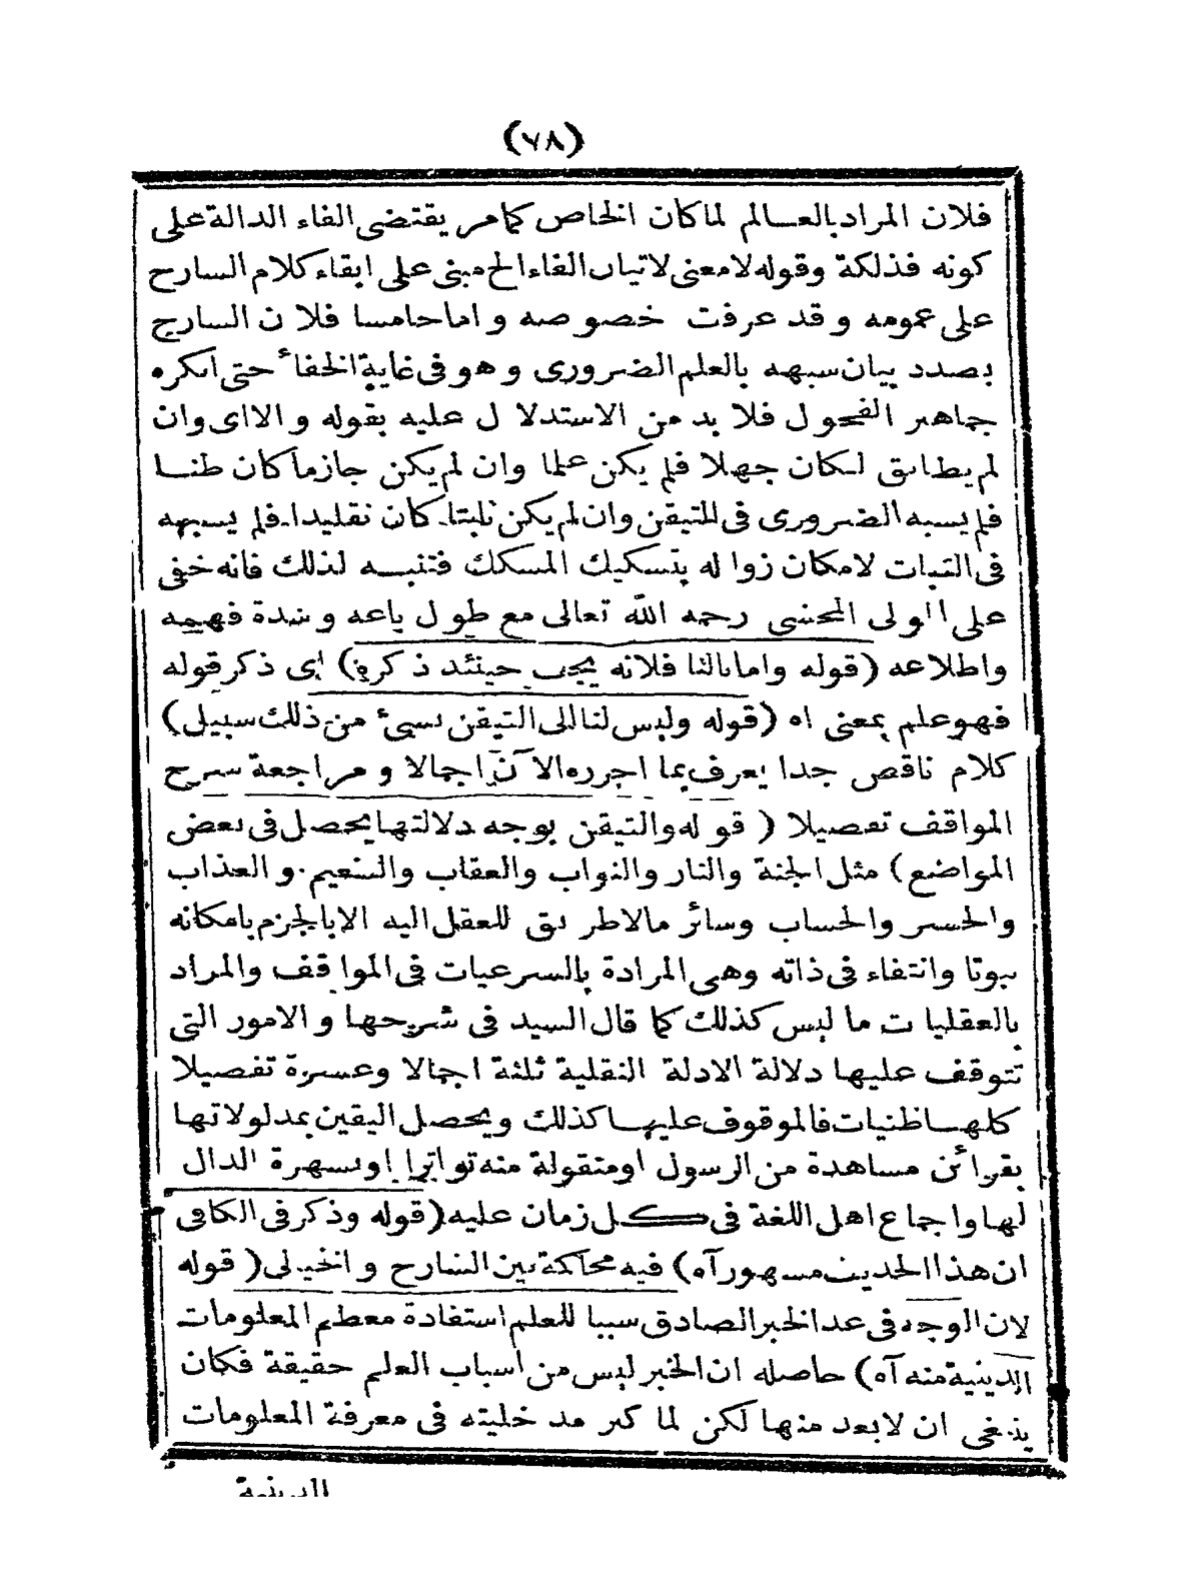 (٧٨)
فلان المراد بالعالم لما كان الخاص كما مر يقتضى الفاء الدالة على
كونه فذلكة وقوله لا معنى لاتيان الفاء الخ مبنى على ابقاء كلام الشارح
على عمومه وقد عرفت خصوصه واما خامسا فلان الشارح
بصدد بيان شبهه بالعلم الضرورى وهو فى غاية الخفاء حتى انكره
جماهير الفحول فلا بد من الاستدلال عليه بقوله والا اى وان
لم يطابق لكان جهلا فلم يكن علما وان لم يكن جازما كان ظنا
فلم يشبه الضرورى فى التيقن وان لم يكن ثابتا كان تقليدا فلم يشبهه
فى الثبات لامكان زواله بتشكيك المشكك فتنبه لذلك فانه خفى
على المولى المحشى رحمه الله تعالى مع طول باعه وشدة فهمه
واطلاعه (قوله واما ثالثا فلانه يجب حينئذ ذكره) اى ذكر قوله
فهو علم بمعنى اه (قوله وليس لنا الى التيقن بشئ من ذلك سبيل)
كلام ناقص جدا يعرف بما احرره الآن اجمالا ومراجعة شرح
المواقف تفصيلا (قوله والتيقن بوجه دلالتها يحصل فى بعض
المواضع) مثل الجنة والنار والثواب والعقاب والتنعيم والعذاب
والحشر والحساب وسائر مالا طريق للعقل اليه الا بالجزم بامكانه
ثبوتا وانتفاء فى ذاته وهى المرادة بالشرعيات فى المواقف والمراد
بالعقليات ما ليس كذلك كما قال السيد فى شرحها والامور التى
تتوقف عليها دلالة الادلة النقلية ثلثة اجمالا وعشرة تفصيلا
كلها ظنيات فالموقوف عليها كذلك ويحصل اليقين بمدلولاتها
بقرائن مشاهدة من الرسول او منقولة منه تواترا او بشهرة الدال
لها واجماع اهل اللغة فى كل زمان عليه (قوله وذكر فى الكافى
ان هذا الحديث مشهور آه) فيه محاكمة بين الشارح والخيالى (قوله
لان الوجه فى عد الخبر الصادق سببا للعلم استفادة معظم المعلومات
الدينية منه آه) حاصله ان الخبر ليس من اسباب العلم حقيقة فكان
ينبغى ان لا يعد منها لكن لما كثر مدخليته فى معرفة المعلومات
الدينية